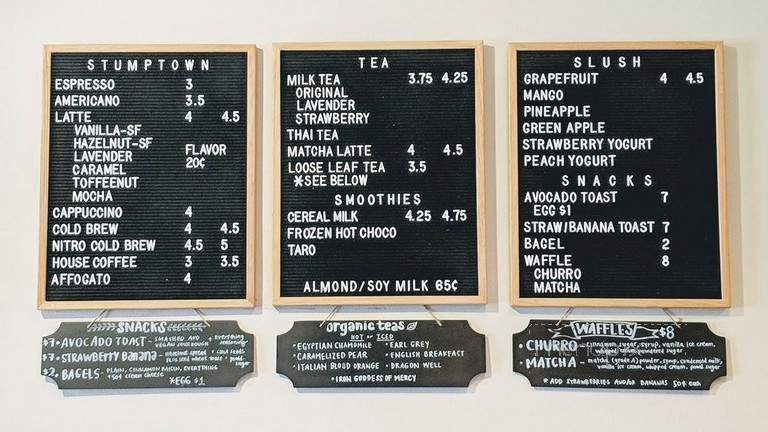 STUMPTOWN
ESPRESSO 3
AMERICANO 3.5
LATTE 4 4.5
VANILLA-SF
HAZELNUT-SF
LAVENDER FLAVOR
CARAMEL 20¢
TOFFEENUT
MOCHA
CAPPUCCINO 4
COLD BREW 4 4.5
NITRO COLD BREW 4.5 5
HOUSE COFFEE 3 3.5
AFFOGATO 4
SNACKS
$7 • AVOCADO TOAST - SMASHED AND everything
VEGAN SOURDOUGH seasoning
$7 • STRAWBERRY BANANA - HAZELNUT SPREAD + chia seeds
sugar
$2 • BAGELS - PLAIN, CINNAMON RAISIN, EVERYTHING
+ 50¢ cream cheese
*EGG $1
TEA
MILK TEA 3.75 4.25
ORIGINAL
LAVENDER
STRAWBERRY
THAI TEA
MATCHA LATTE 4 4.5
LOOSE LEAF TEA 3.5
*SEE BELOW
SMOOTHIES
CEREAL MILK 4.25 4.75
FROZEN HOT CHOCO
TARO
ALMOND/SOY MILK 65¢
organic teas
HOT or ICED
• EGYPTIAN CHAMOMILE • EARL GREY
• CARAMELIZED PEAR • ENGLISH BREAKFAST
• ITALIAN BLOOD ORANGE • DRAGON WELL
• IRON GODDESS OF MERCY
SLUSH
GRAPEFRUIT 4 4.5
MANGO
PINEAPPLE
GREEN APPLE
STRAWBERRY YOGURT
PEACH YOGURT
SNACKS
AVOCADO TOAST 7
EGG $1
STRAW/BANANA TOAST 7
BAGEL 2
WAFFLE 8
CHURRO
MATCHA
WAFFLES $8
• CHURRO - cinnamon sugar, syrup, vanilla ice cream,
whipped cream, powdered sugar
• MATCHA - matcha (grade A) powder, syrup, condensed milk,
vanilla ice cream, whipped cream, powd. sugar
* ADD STRAWBERRIES AND/OR BANANAS 50¢ each